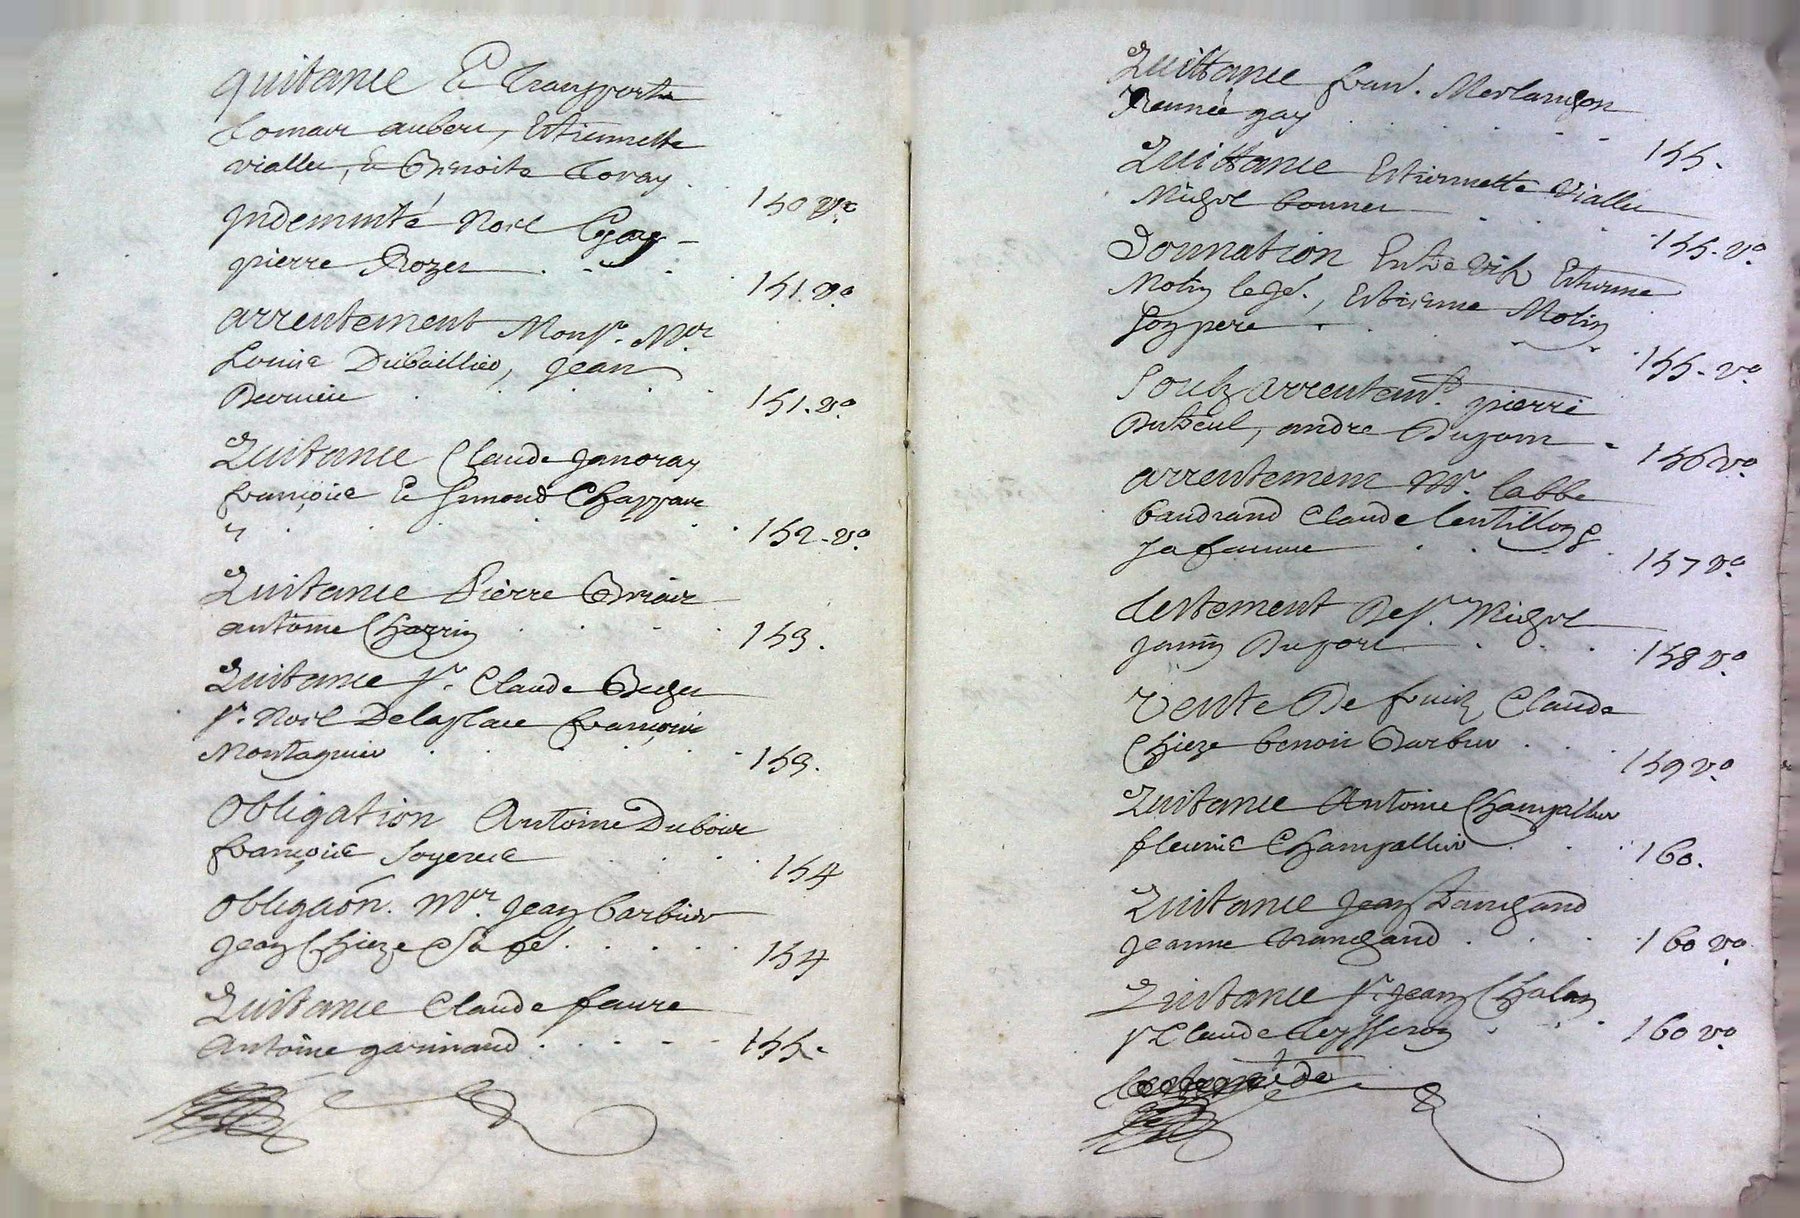 quittance & Transporte
Aubert, Estiennette
viallet, à Benoite Toray
150 vo
Indemnité Noel
pierre Rozet
151. vo
arrentement Monsr. Mr
Louis Dubaillied, Jean
Bernière
151. vo
Quitance Claude Janoray
françoise & Simond Chappan
152. vo
Quitance Pierre
antoine Charrin
153.
Quitance Sr. Claude
Sr. Noel Delaplace françois
Montagnier
153.
Obligation Antoine Duboure
françoise
154
obligaon. Mr. Jean Barbier
Jean Chieze
154
Quitance Claude faure
Antoine garinaud
155.
Quittance fran. Merlançon
gay
155.
Quittance Estiennette Viallet
Michel bonnet
155. vo
Donnation Entre Vifs Estienne
Molin le Je., Estienne Molin
son pere
155. vo
Soubz arrentemt. pierre
Duteul, andre Dujon
156 vo
arrentement Mr. labbe
baudrand Claude lentillon &
sa femme
157 vo
testement De sr. Michel
Dupon
158 vo
Vente De fruits Claude
Chieze benoit Barbier
159 vo
Quitance Antoine Champallier
fleurie Champallier
160.
Quitance Jean
Jeanne
160 vo
Quitance sr. Jean Chalan
sr Claude Teysseron
160 vo